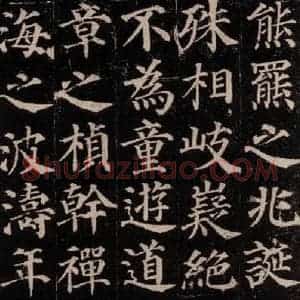 熊羆之兆誕
殊相岐嶷絕
不為童遊道
章之楨幹禪
海之波濤年
Shufaziliao.COM